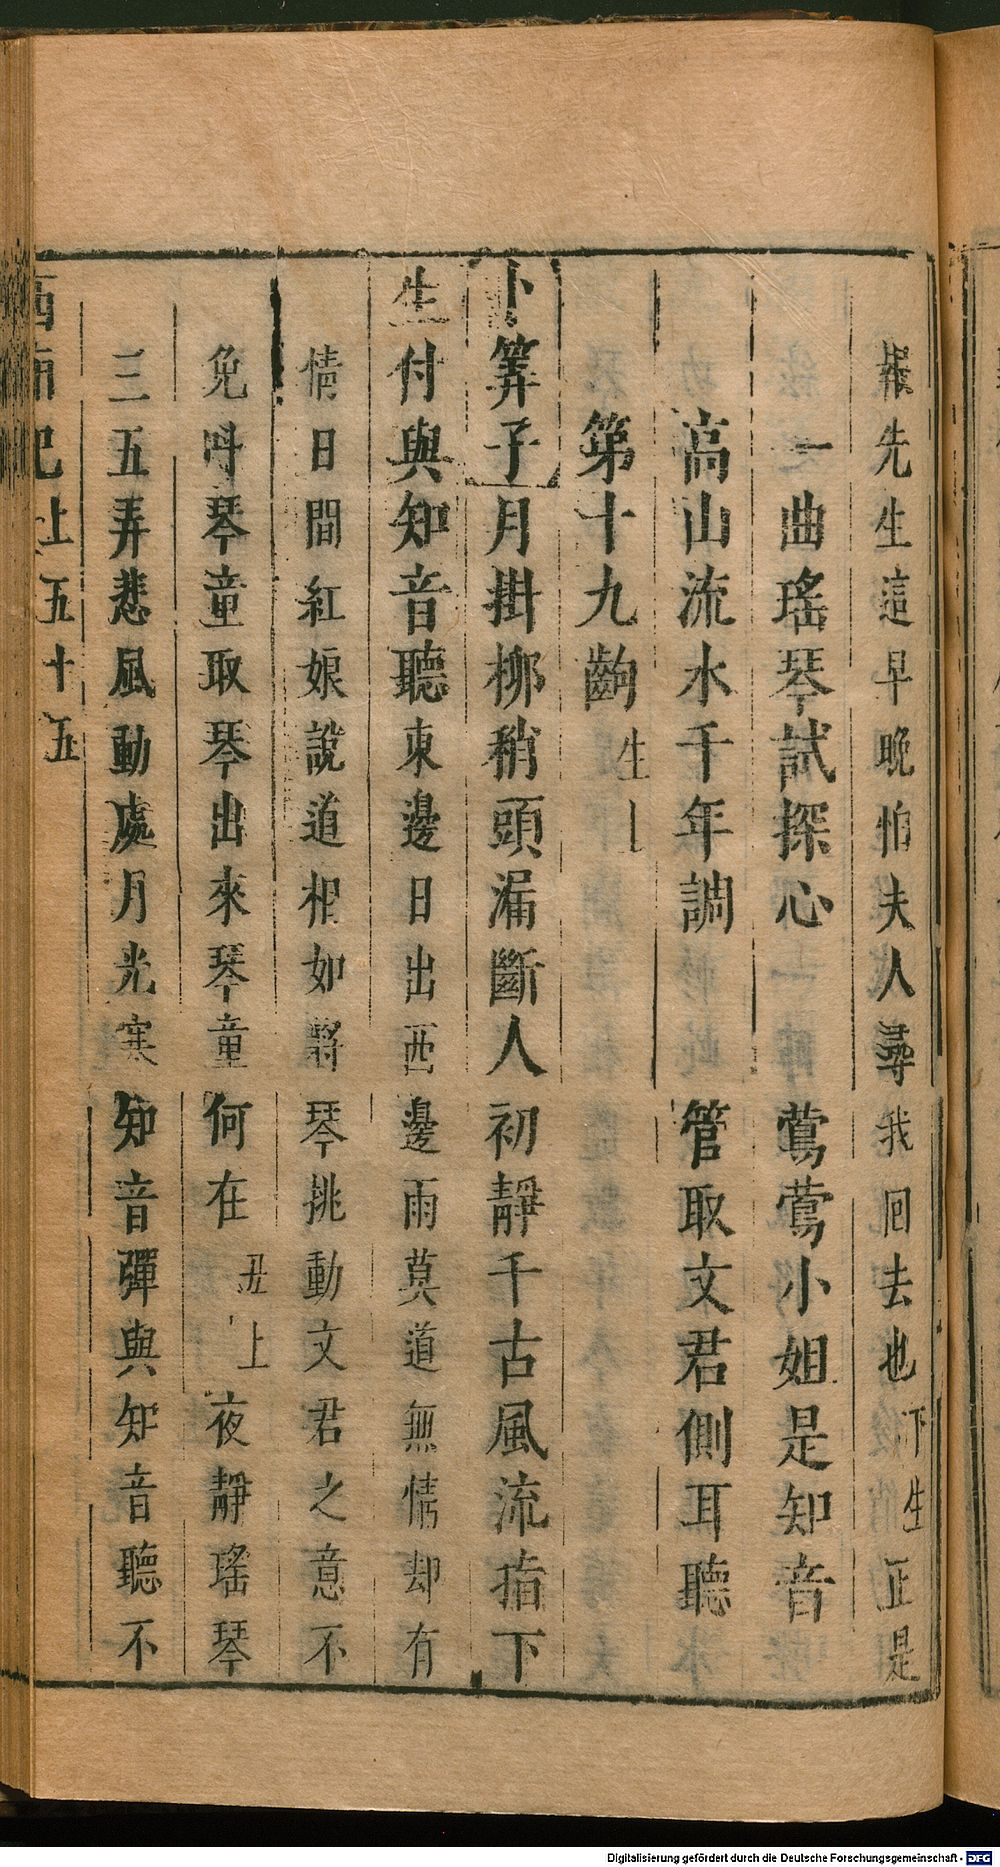 報先生這早晚怕夫人尋我回去也下生正是
一曲瑤琴試探心　鶯鶯小姐是知音
高山流水千年調　管取文君側耳聽
第十九齣生上
卜筭子月掛柳稍頭漏斷人初靜千古風流指下
生付與知音聽東邊日出西邊雨莫道無情却有
情日間紅娘說道相如將琴挑動文君之意不
免呌琴童取琴出來琴童何在丑上夜靜瑤琴
三五弄悲風動處月光寒知音彈與知音聽不
西廂記上五十五
Digitalisierung gefördert durch die Deutsche Forschungsgemeinschaft - DFG